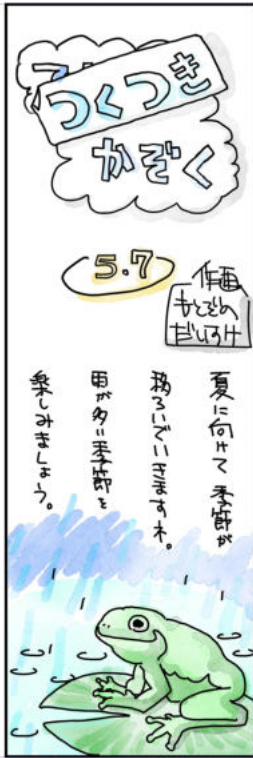 つくつき
かぞく
5.7
作画
もとぞの
だいすけ
夏に向けて 季節が
移ろいでいきますネ。
雨が多い季節を
楽しみましょう。